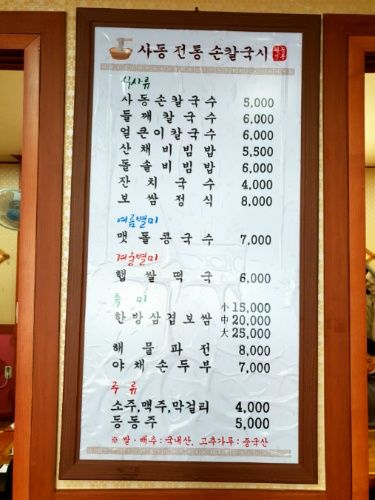 사동 전통 손칼국시
식사류
사동손칼국수 5,000
들깨칼국수 6,000
얼큰이칼국수 6,000
산채비빔밥 5,500
돌솔비빔밥 6,000
잔치국수 4,000
보쌈정식 8,000
여름별미
맷돌콩국수 7,000
겨울별미
햅쌀떡국 6,000
특미
小 15,000
한방삼겹보쌈 中 20,000
大 25,000
해물파전 8,000
야채손두부 7,000
주류
소주,맥주,막걸리 4,000
동동주 5,000
※ 쌀·배추:국내산, 고추가루:중국산